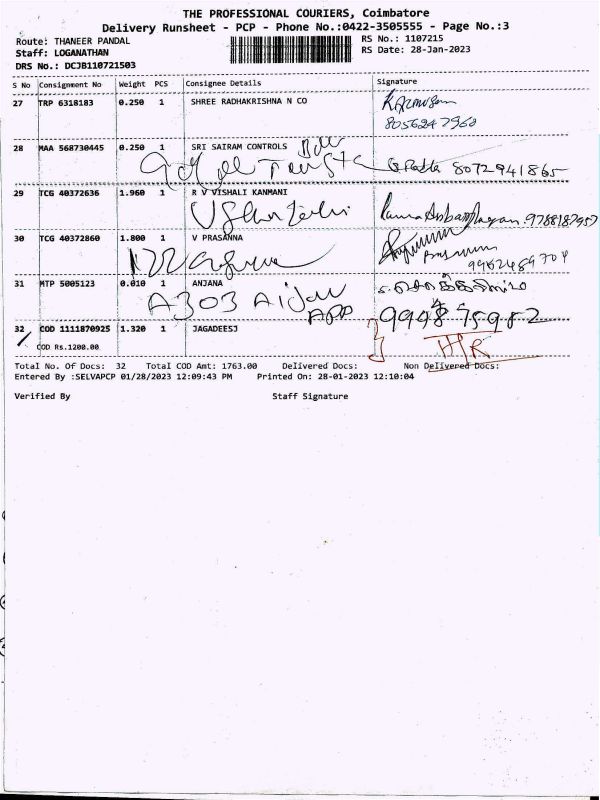 THE PROFESSIONAL COURIERS, Coimbatore
Delivery Runsheet - PCP - Phone No.:0422-3505555 - Page No.:3
Route: THANEER PANDAL
RS No.: 1107215
Staff: LOGANATHAN
RS Date: 28-Jan-2023
DRS No.: DCJB110721503
S No Consignment No Weight PCS Consignee Details Signature
27 TRP 6318183 0.250 1 SHREE RADHAKRISHNA N CO
8056247960
28 MAA 568730445 0.250 1 SRI SAIRAM CONTROLS
8072941865
29 TCG 40372636 1.960 1 R V VISHALI KANMANI
9788187957
30 TCG 40372860 1.800 1 V PRASANNA
31 MTP 5005123 0.010 1 ANJANA
A303
APP
32 COD 1111870925 1.320 1 JAGADEESJ
COD Rs.1200.00
Total No. Of Docs: 32 Total COD Amt: 1763.00 Delivered Docs: Non Delivered Docs:
Entered By :SELVAPCP 01/28/2023 12:09:43 PM Printed On: 28-01-2023 12:10:04
Verified By Staff Signature